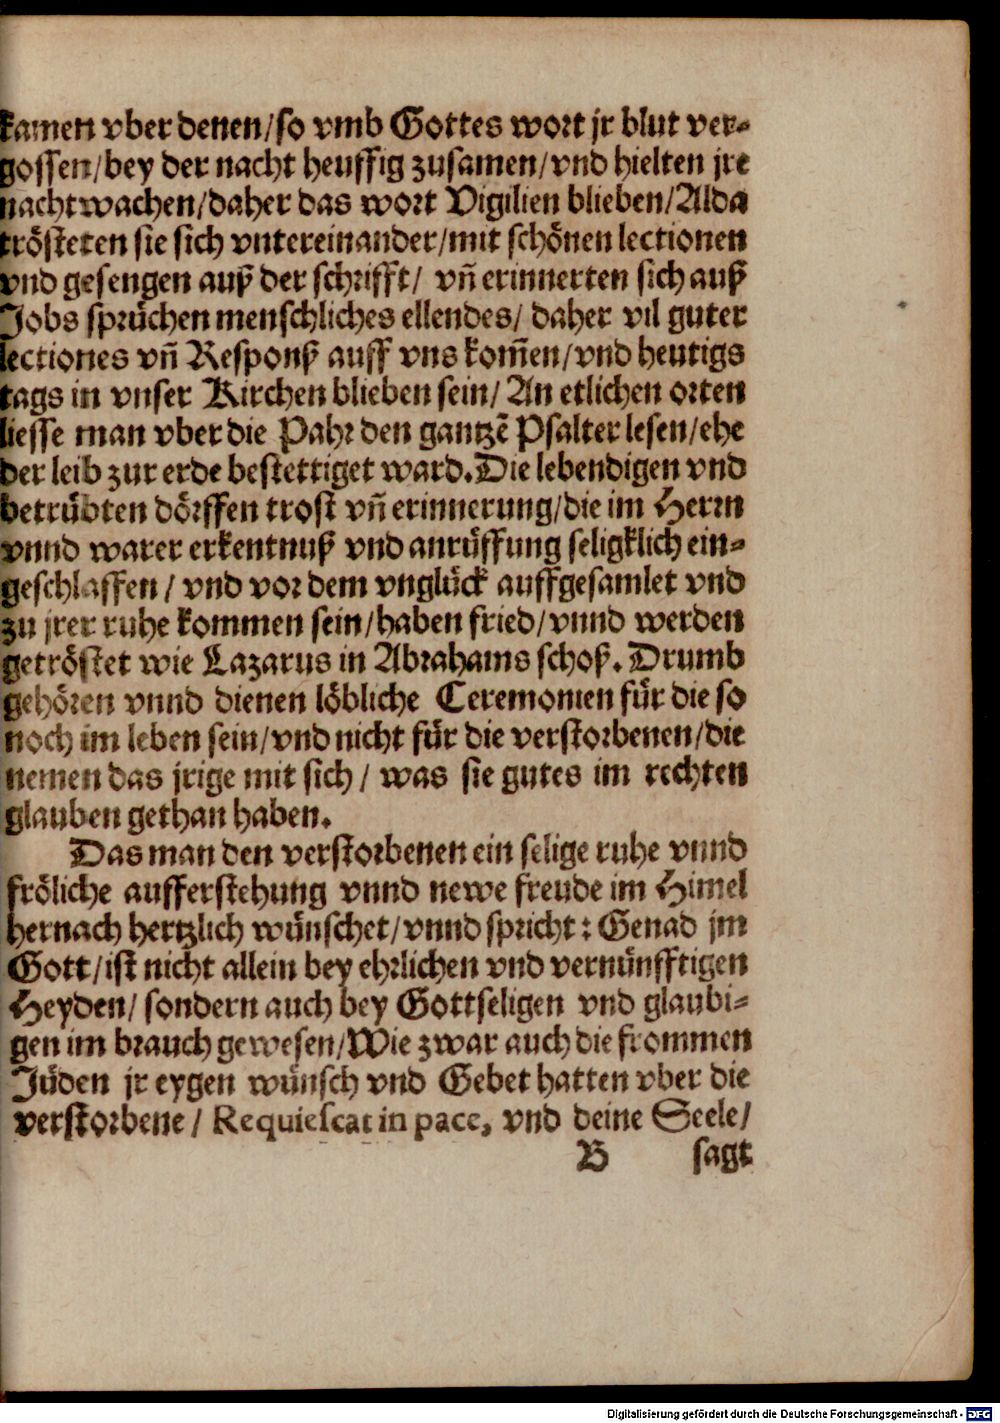 kamen vber denen/so vmb Gottes wort jr blut ver-
gossen/bey der nacht heuffig zusamen/vnd hielten jre
nachtwachen/daher das wort Vigilien blieben/Alda
trösteten sie sich vntereinander/mit schönen lectionen
vnd gesengen auß der schrifft/ vñ erinnerten sich auß
Jobs sprüchen menschliches ellendes/ daher vil guter
lectiones vñ Responß auff vns kom̃en/vnd heutigs
tags in vnser Kirchen blieben sein/ An etlichen orten
liesse man vber die Pahr den gantzẽ Psalter lesen/ehe
der leib zur erde bestettiget ward. Die lebendigen vnd
betrübten dörffen trost vñ erinnerung/die im Herrn
vnnd warer erkentnuß vnd anrüffung seligklich ein-
geschlaffen / vnd vor dem vnglück auffgesamlet vnd
zu jrer ruhe kommen sein/haben fried/vnnd werden
getröstet wie Lazarus in Abrahams schoß. Drumb
gehören vnnd dienen löbliche Ceremonien für die so
noch im leben sein/vnd nicht für die verstorbenen/die
nemen das jrige mit sich/ was sie gutes im rechten
glauben gethan haben.
Das man den verstorbenen ein selige ruhe vnnd
fröliche aufferstehung vnnd newe freude im Himel
hernach hertzlich wünschet/vnnd spricht: Genad jm
Gott/ist nicht allein bey ehrlichen vnd vernünfftigen
Heyden/ sondern auch bey Gottseligen vnd glaubi-
gen im brauch gewesen/Wie zwar auch die frommen
Jüden jr eygen wünsch vnd Gebet hatten vber die
verstorbene/ Requiescat in pace, vnd deine Seele/
B sagt
Digitalisierung gefördert durch die Deutsche Forschungsgemeinschaft - DFG